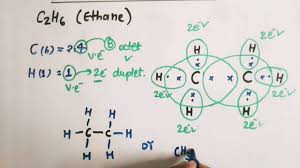 C₂H₆ (Ethane)
C (6) = 2, 4 8 octet
v.e⁻
H (1) = 1 → 2e⁻ duplet.
v.e⁻
2e⁻ 2e⁻
H H
2e⁻ H C C H 2e⁻
H H
2e⁻ 2e⁻
H H
H - C - C - H
H H
or
CH